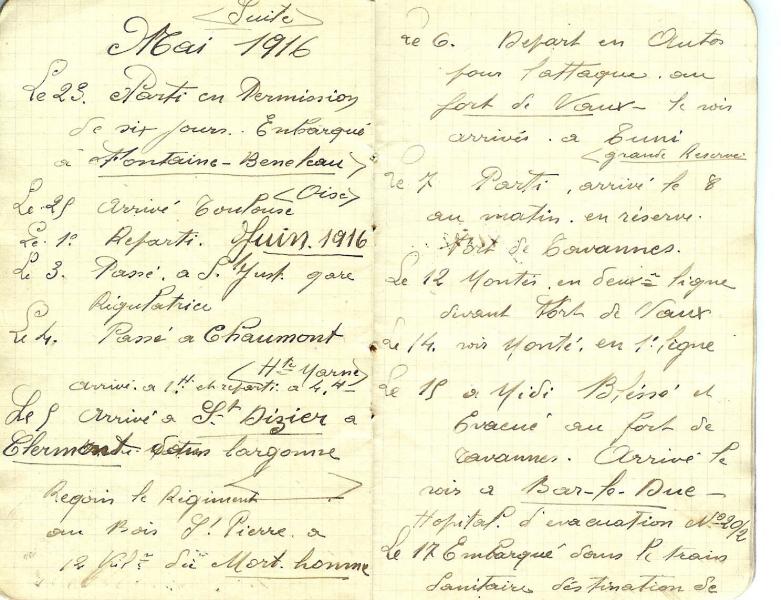 <Suite>
Mai 1916
Le 23. Parti en Permission
de six jours. Embarqué
à Fontaine-Beneleau>
<Oise>
Le 25 Arrivé Toulouse
Le 1º Reparti. Juin. 1916
Le 3. Passé, a St Just gare
Régulatrice
Le 4. Passé a Chaumont
<Hte Marne>
arrivé. a 1H. et reparti a 4,4
Le 5 Arrivé a St Dizier a
Clermont dans largonne
Rejoins le Régiment
au Bois St Pierre. a
12 du Mort. homme
Le 6. Depart en Autos
pour l'attaque. au
fort de Vaux- le soir
arrivés. a
<grande Reserve
Le 7 Parti, arrivé le 8
au matin. en réserve.
Fort de Tavannes.
Le 12 Montés. en deux ligne
devant Fort de Vaux
Le 14. soir Monté. en 1º ligne
Le 15 a Midi Bléssé et
Evacué au fort de
Tavannes. Arrivé le
soir a Bar-le-Duc-
Hopital. d'evacuation Nº 20/2
Le 17 Embarqué dans le train
Sanitaire déstination de